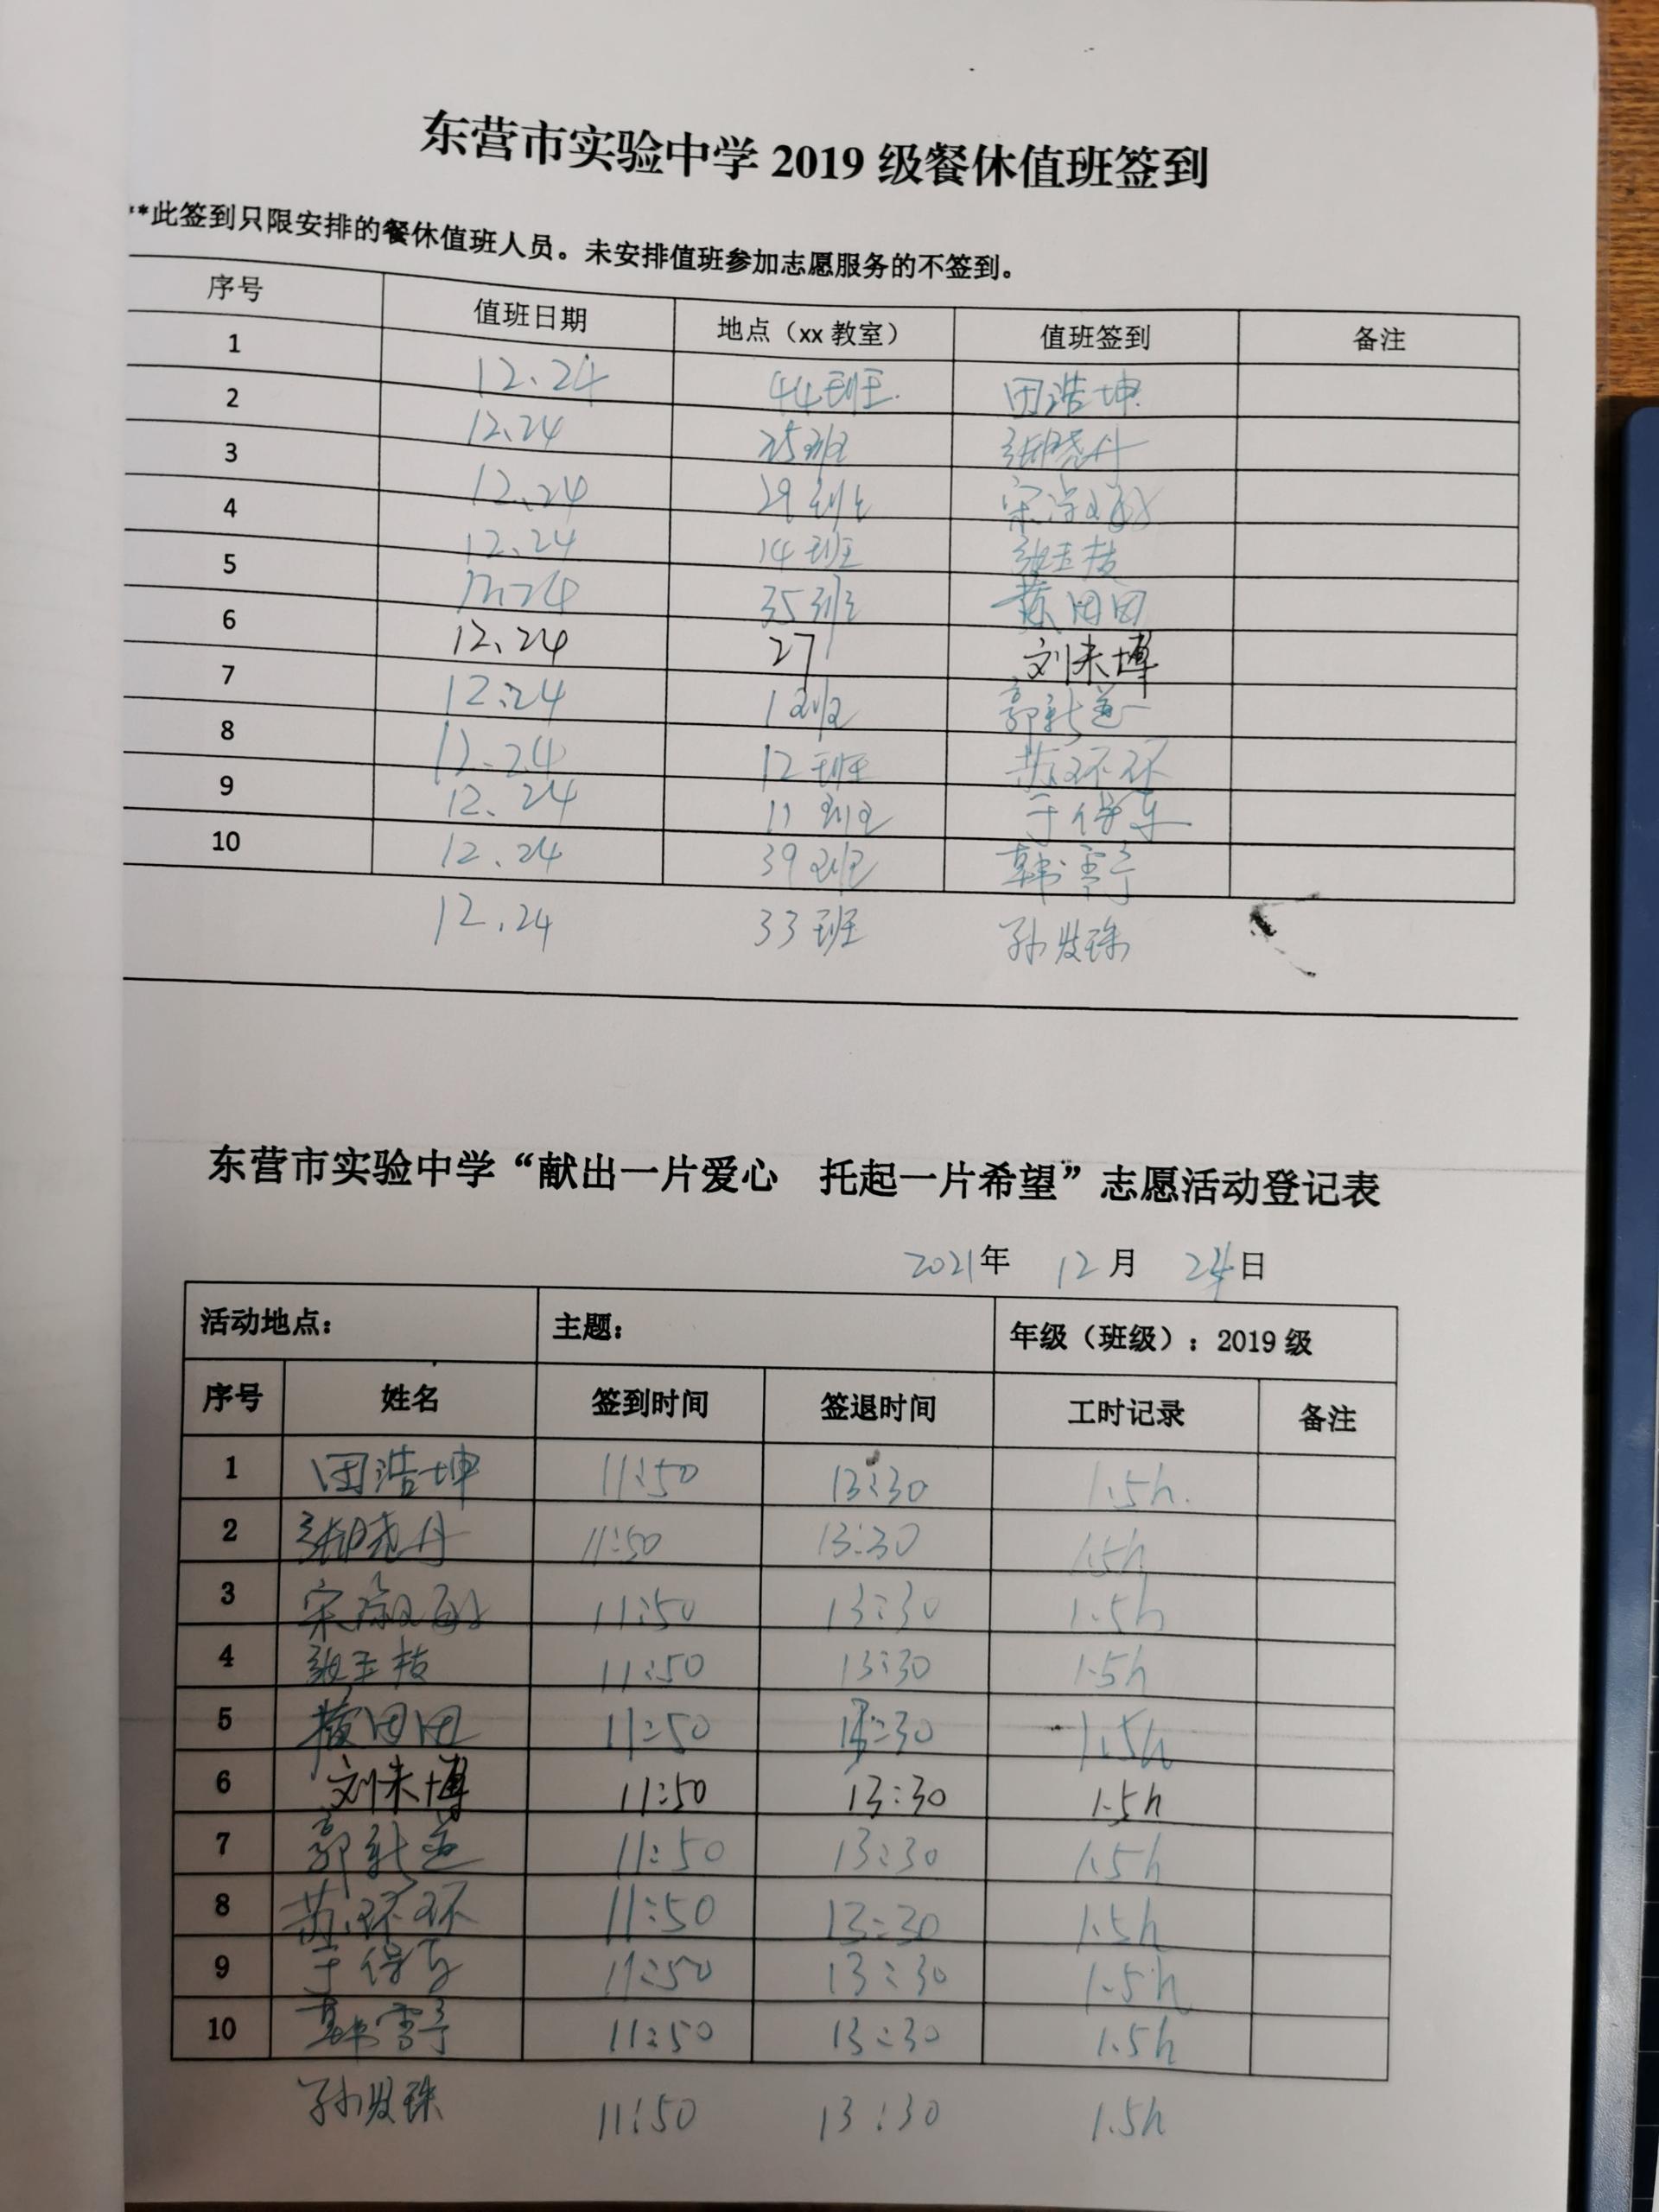 东营市实验中学 2019 级餐休值班签到
**此签到只限安排的餐休值班人员。未安排值班参加志愿服务的不签到。
序号 值班日期 地点（xx 教室） 值班签到 备注
1 12.24 44班 田浩坤
2 12.24 25班
3 12.24 29班
4 12.24 14班 张玉枝
5 12.24 35班 田田
6 12.24 27 刘来博
7 12.24 1班 郭新
8 12.24 12班 苏环环
9 12.24 11班 于保
10 12.24 39班 韩雪
12.24 33班 孙
东营市实验中学“献出一片爱心 托起一片希望”志愿活动登记表
2021年 12月 24日
活动地点： 主题： 年级（班级）：2019 级
序号 姓名 签到时间 签退时间 工时记录 备注
1 田浩坤 11:50 13:30 1.5h.
2 11:50 13:30 1.5h
3 11:50 13:30 1.5h
4 张玉枝 11:50 13:30 1.5h
5 田田 11:50 13:30 1.5h
6 刘来博 11:50 13:30 1.5h
7 郭新 11:50 13:30 1.5h
8 苏环环 11:50 13:30 1.5h
9 于保 11:50 13:30 1.5h
10 韩雪 11:50 13:30 1.5h
孙 11:50 13:30 1.5h